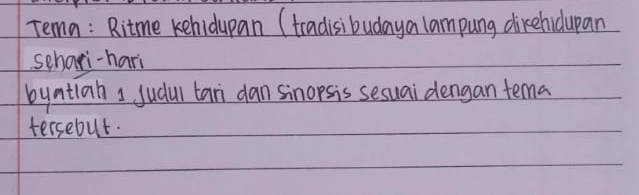 Tema : Ritme kehidupan (tradisi budaya lampung dikehidupan
sehari-hari
buatlah 1 Judul tari dan sinopsis sesuai dengan tema
tersebut.